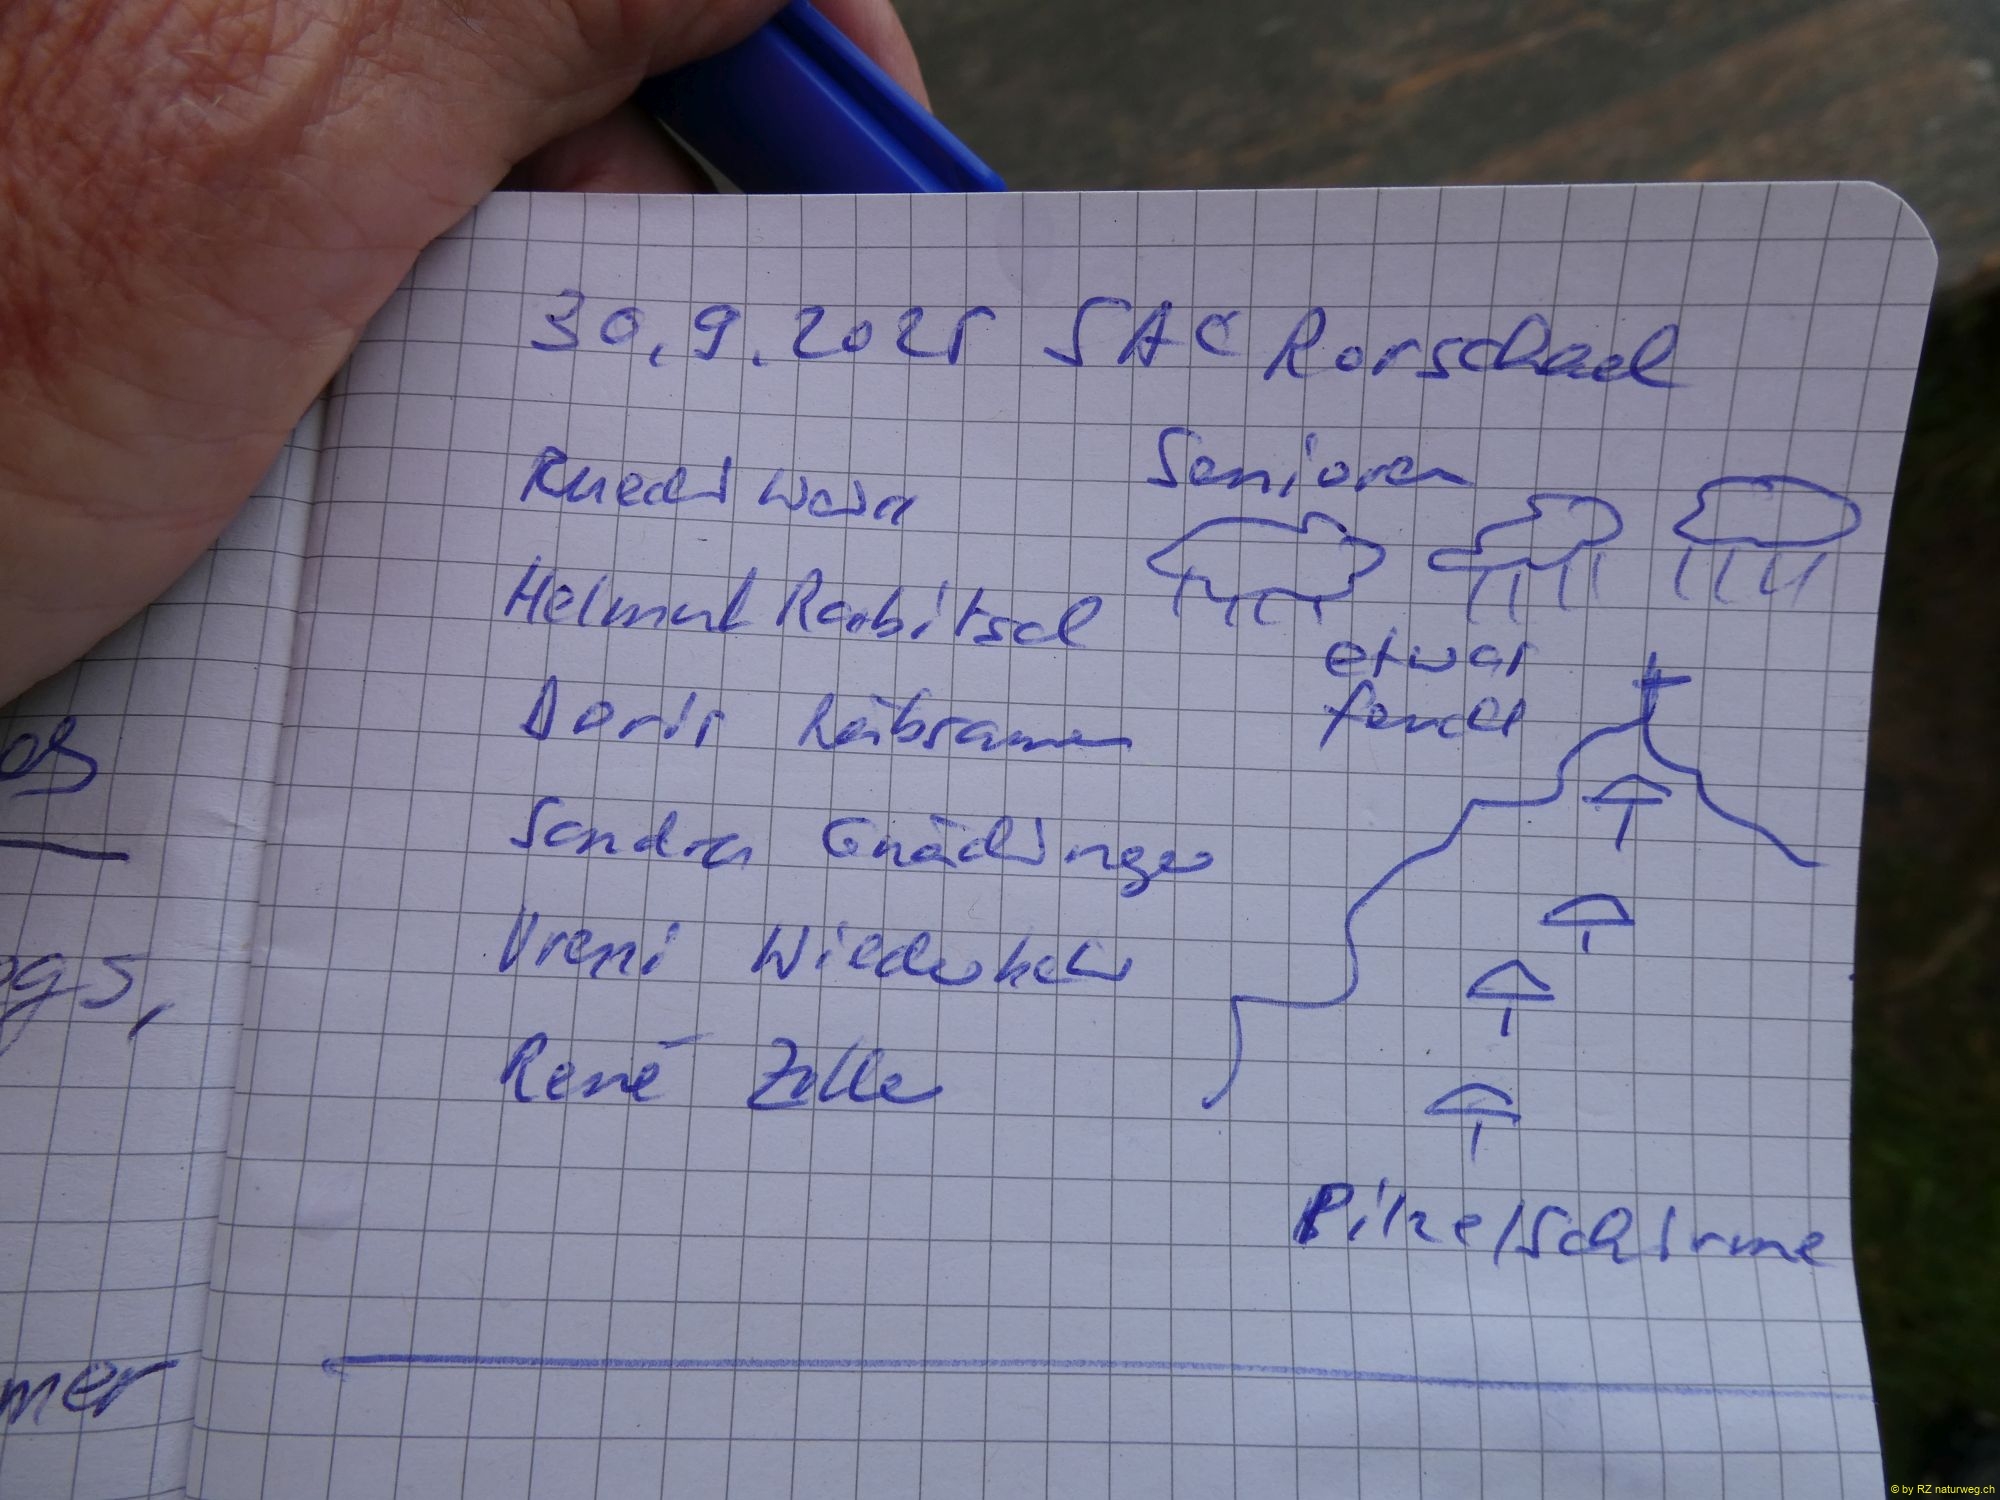 30.9.2025 SAC Rorschach
Senioren
Ruedi
Helmut Rabitsch
etwas
feucht
Doris Räbsamen
Sandra Gnädinger
Vreni Wiederkehr
René Zeller
Pilze/Schirme
ogs,
mer
© by RZ naturweg.ch